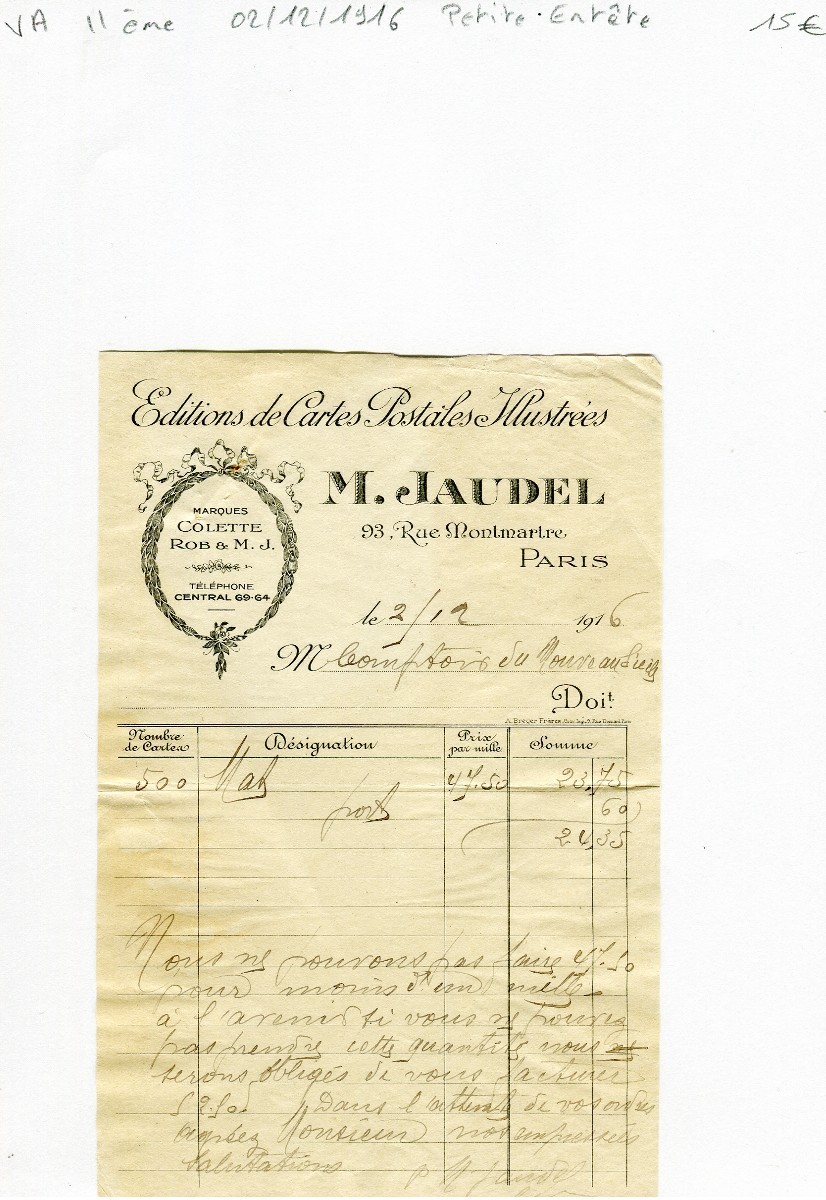 VA 11ème 02/12/1916 Petite Entête 15€
Editions de Cartes Postales Illustrées
M. JAUDEL
93, Rue Montmartre
PARIS
MARQUES
COLETTE
ROB & M. J.
TÉLÉPHONE
CENTRAL 69-64
le 2/12 1916
M Comptoir du Nouveau
Doit
A. Breger Frères
Nombre de Cartes Désignation Prix par mille Somme
500 Mat 47.50 23,75
port 60
24,35
Nous ne pouvons pas faire 47.50
pour moins d'un mille
à l'avenir si vous ne pouvez
pas prendre cette quantité nous ne
serons obligés de vous facturer
52.50. Dans l'attente de vos ordres
agréez Monsieur nos empressés
Salutations
p M Jaudel